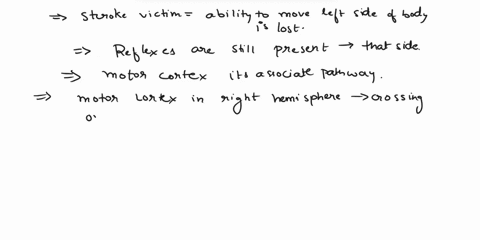 ⇒ Stroke victim = ability to move left side of body
is lost.
⇒ Reflexes are still present → that side.
⇒ motor cortex its associate pathway.
⇒ motor cortex in right hemisphere → crossing
o